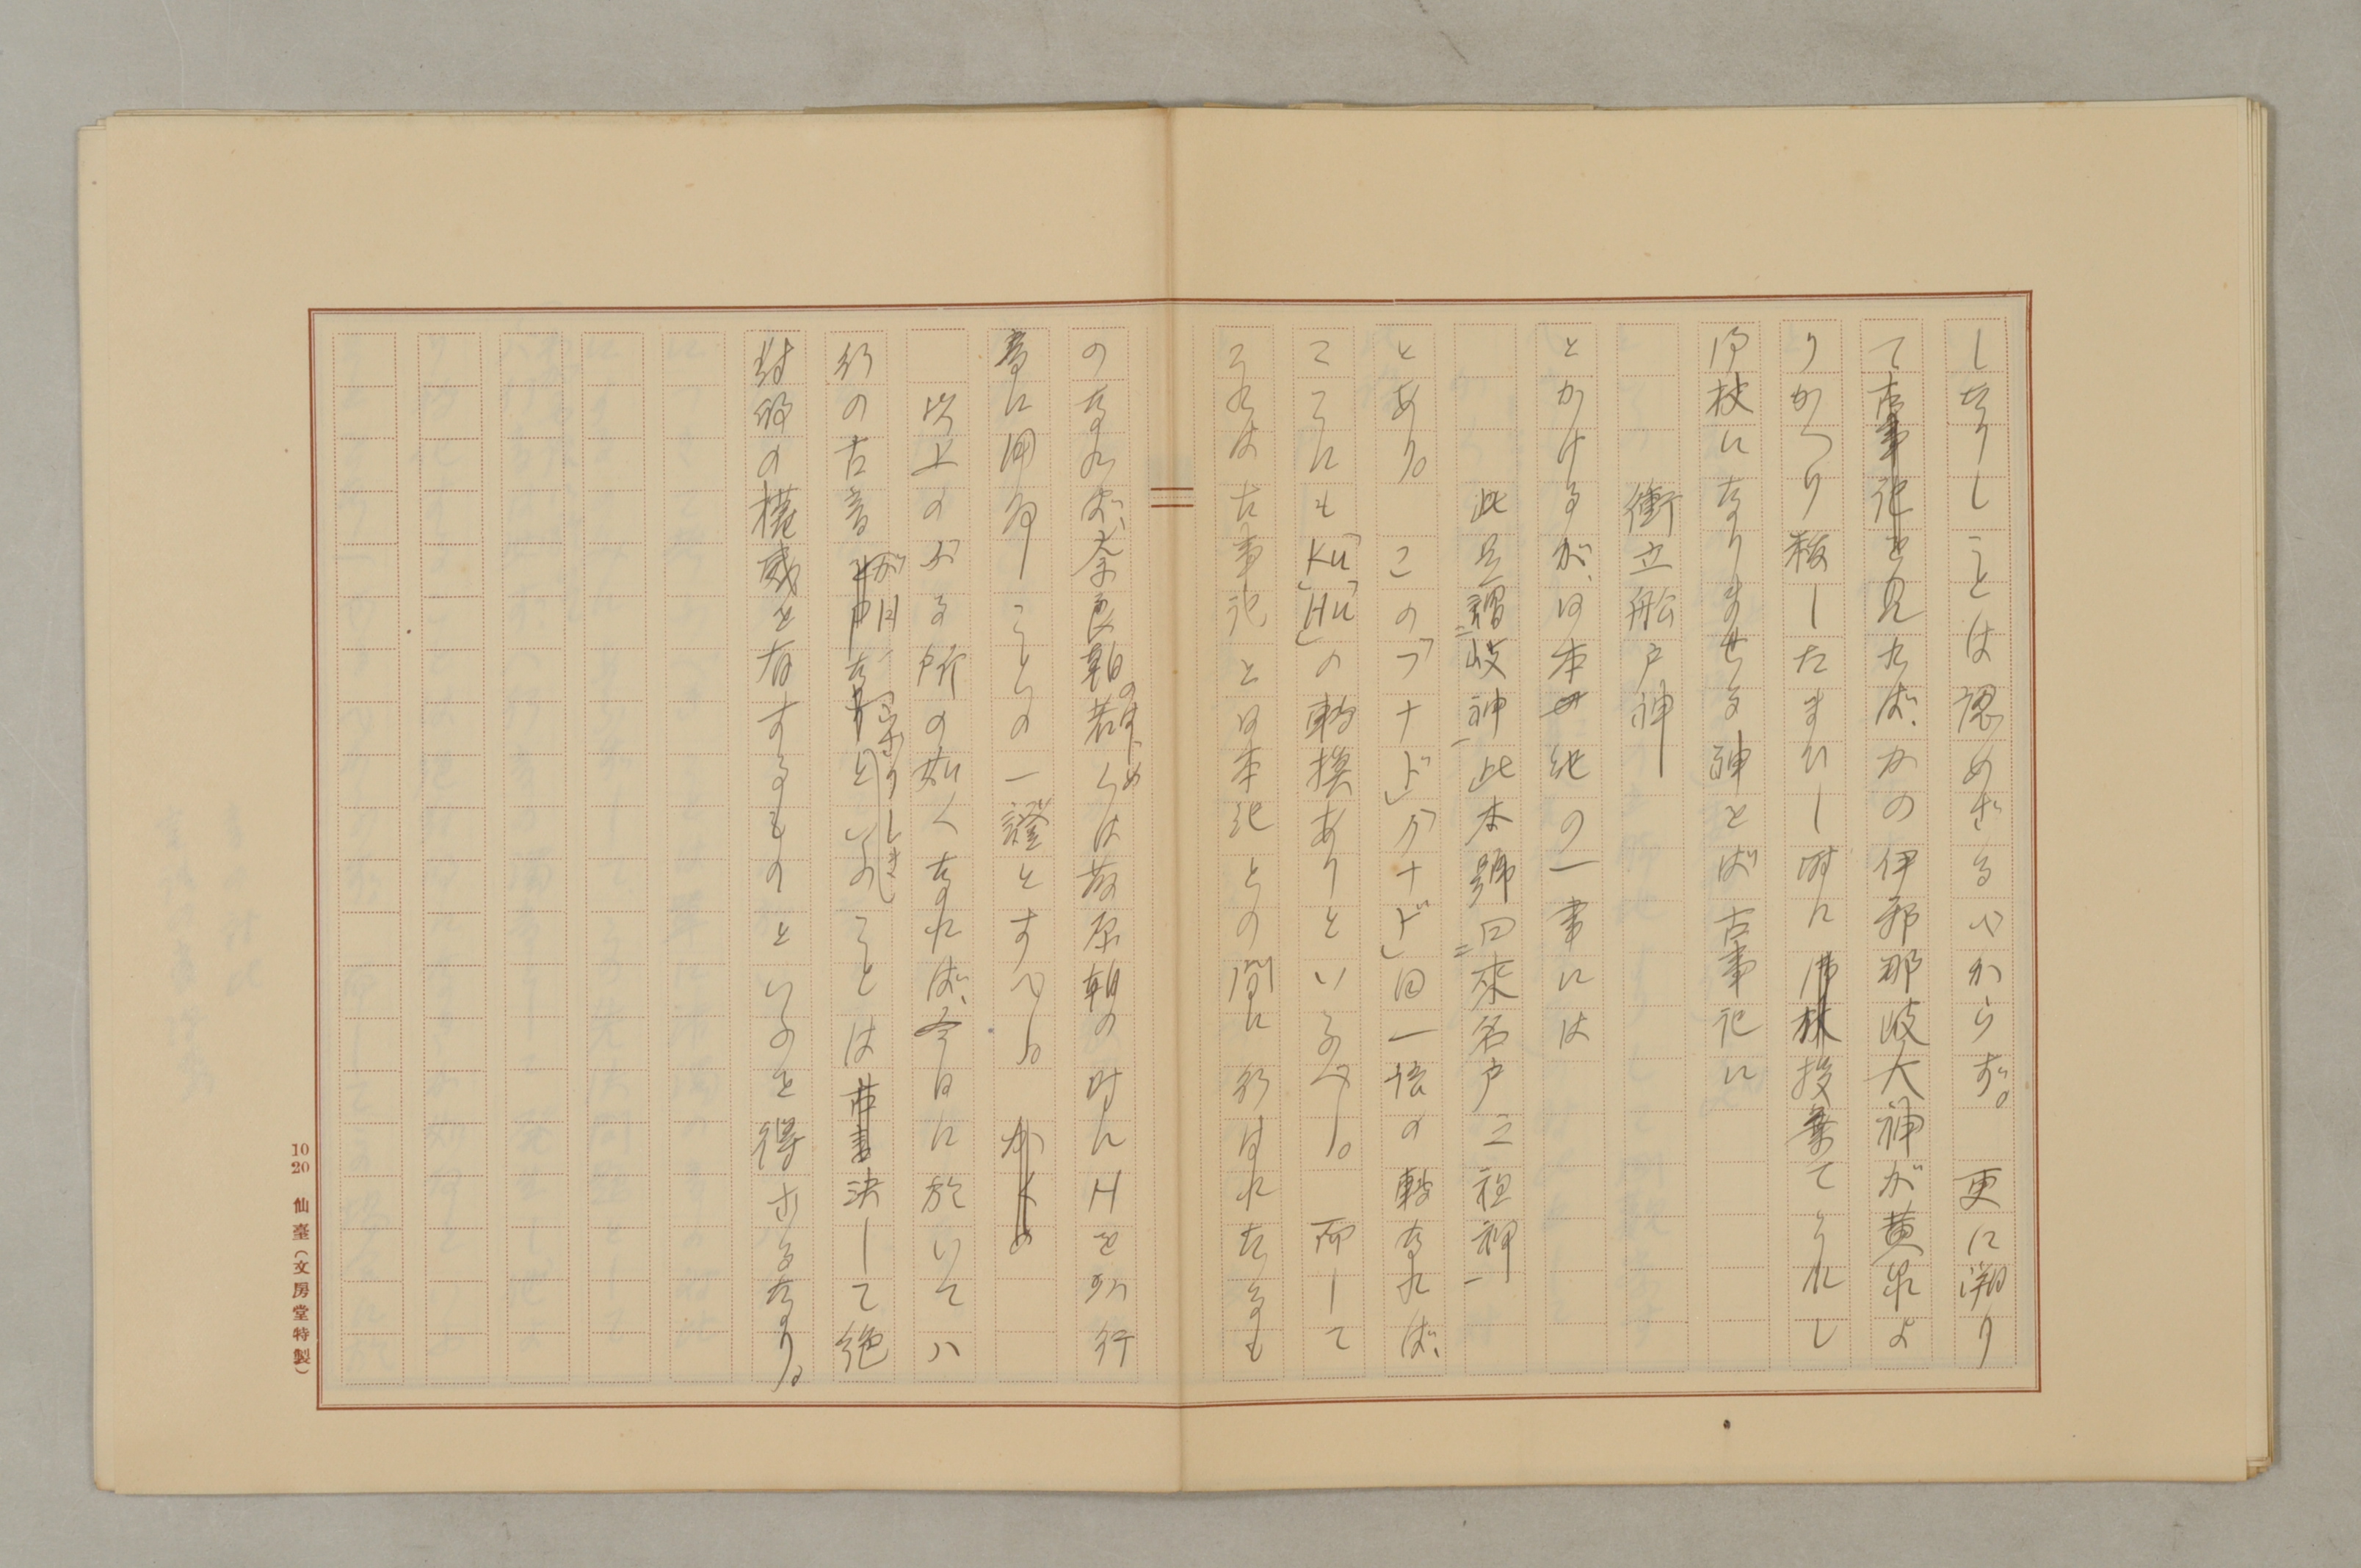 しなりしことは認めざるべからず。更に溯り
て古事記を見れば、かの伊邪那岐大神が黄泉よ
りかへり秡したまひし時に投棄てられし
御杖になりませる神をば古事記に
衝立船戸神
とかけるが、日本紀の一書には
此是謂二岐神一此本號曰二來名戸之祖神一
とあり。この「フナド」「クナド」同一語の轉なれば、
ここにも「KU」「HU」の轉換ありといふべし。而して
それは古事記と日本紀との間に行はれたるも
のなれば、奈良朝のはじめ若くは藤原朝の時にHを
音に用ゐしことの一證とすべし。
以上のぶる所の如くなれば、今日に於いてハ
行の古音がPなりしといふことは決して絶
對的の權威を有するものといふを得ざるなり。
10 20 仙臺(文房堂特製)